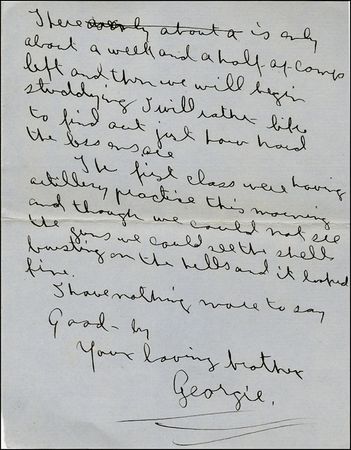 There only about a is only
about a week and a half of camp
left and then we will begin
studdying I will rather like
to find out just how hard
the lessons are
The first class were having
artillery practise this morning
and though we could not see
the guns we could see the shells
bursting on the hills and it looked
fine.
I have nothing more to say
Good-by
Your loving brother
Georgie.